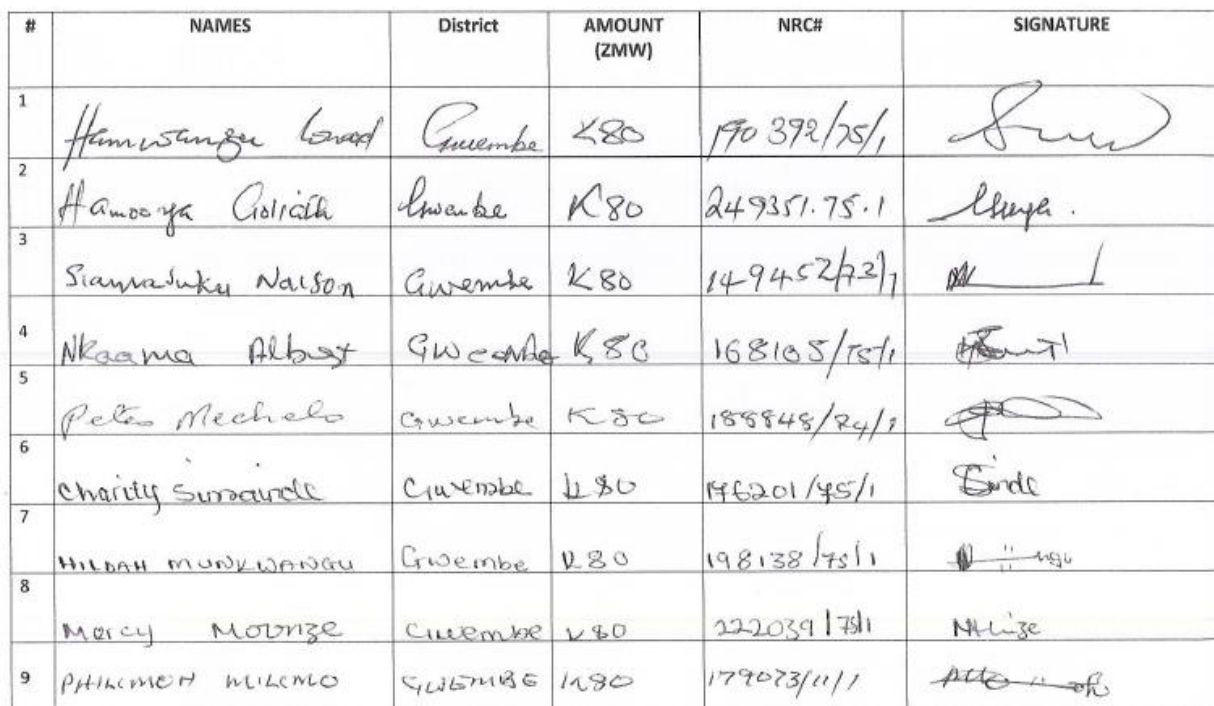 # NAMES District AMOUNT (ZMW) NRC# SIGNATURE
1 Hamwangu Gwembe K80 190392/75/1
2 Hamooya Goliath Gwembe K80 249351.75.1
3 Siamaduku Nalson Gwembe K80 149452/73/1
4 Nkaama Albert Gwembe K80 168105/75/1
5 Peter Mechelo Gwembe K80 188848/74/1
6 Charity Simainde Gwembe K80 176201/75/1 Sinde
7 HILDAH MUNKWANGU Gwembe K80 198138/75/1
8 Mercy Moonze Gwembe K80 222039/75/1
9 PHILIMON MILIMO GWEMBE K80 179073/11/1